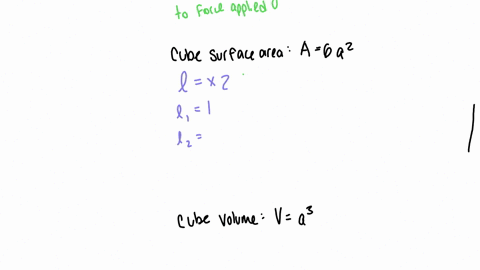 to force applied
Cube surface area: A = 6a²
l = x2
l₁ = 1
l₂ =
Cube Volume: V = a³